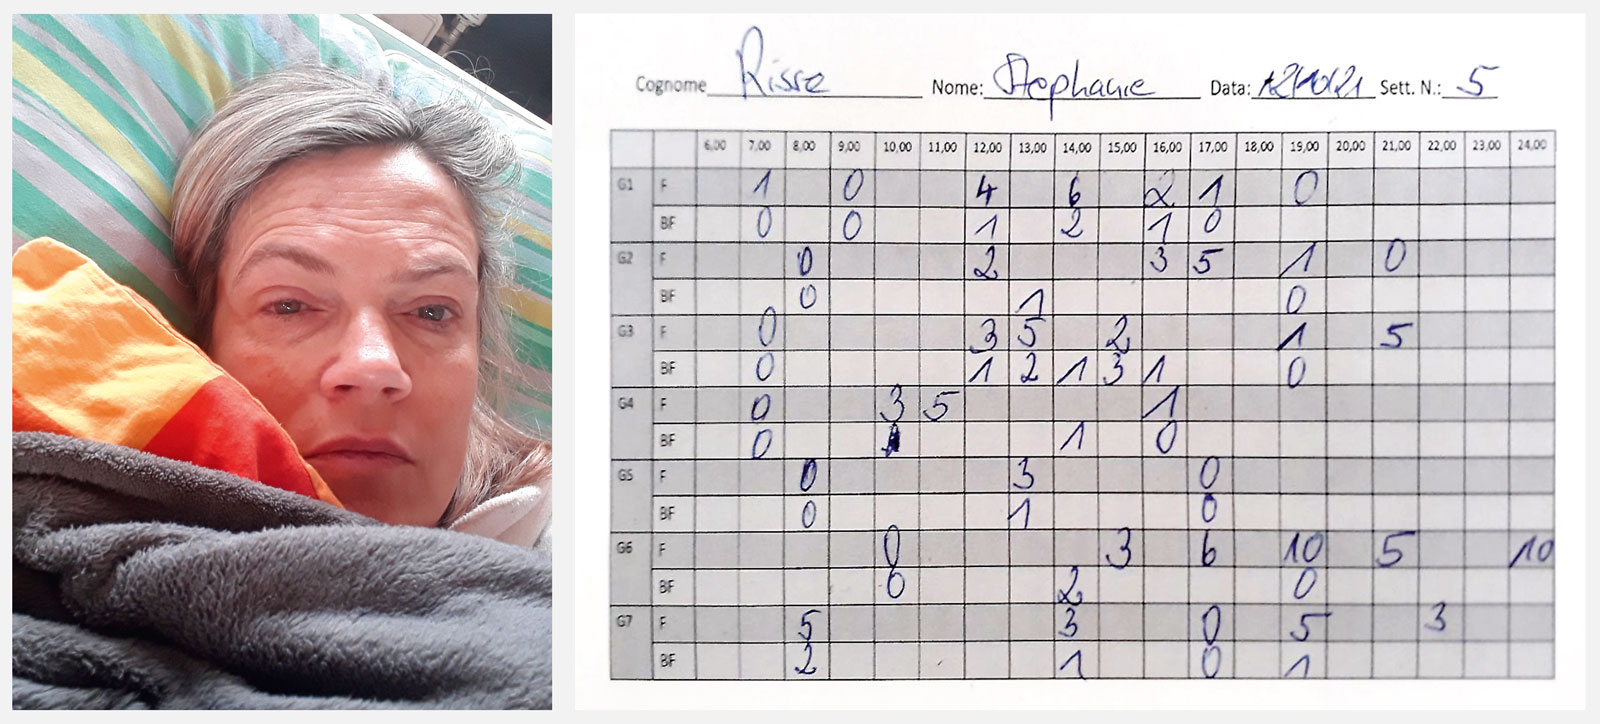 Cognome Risse Nome: Stephanie Data: 12/10/21 Sett. N.: 5
6,00 7,00 8,00 9,00 10,00 11,00 12,00 13,00 14,00 15,00 16,00 17,00 18,00 19,00 20,00 21,00 22,00 23,00 24,00
G1 F 1 0 4 6 2 1 0
BF 0 0 1 2 1 0
G2 F 0 2 3 5 1 0
BF 0 1 0
G3 F 0 3 5 2 1 5
BF 0 1 2 1 3 1 0
G4 F 0 3 5 1
BF 0 1 0
G5 F 0 3 0
BF 0 1 0
G6 F 0 3 6 10 5 10
BF 0 2 0
G7 F 5 3 0 5 3
BF 2 1 0 1